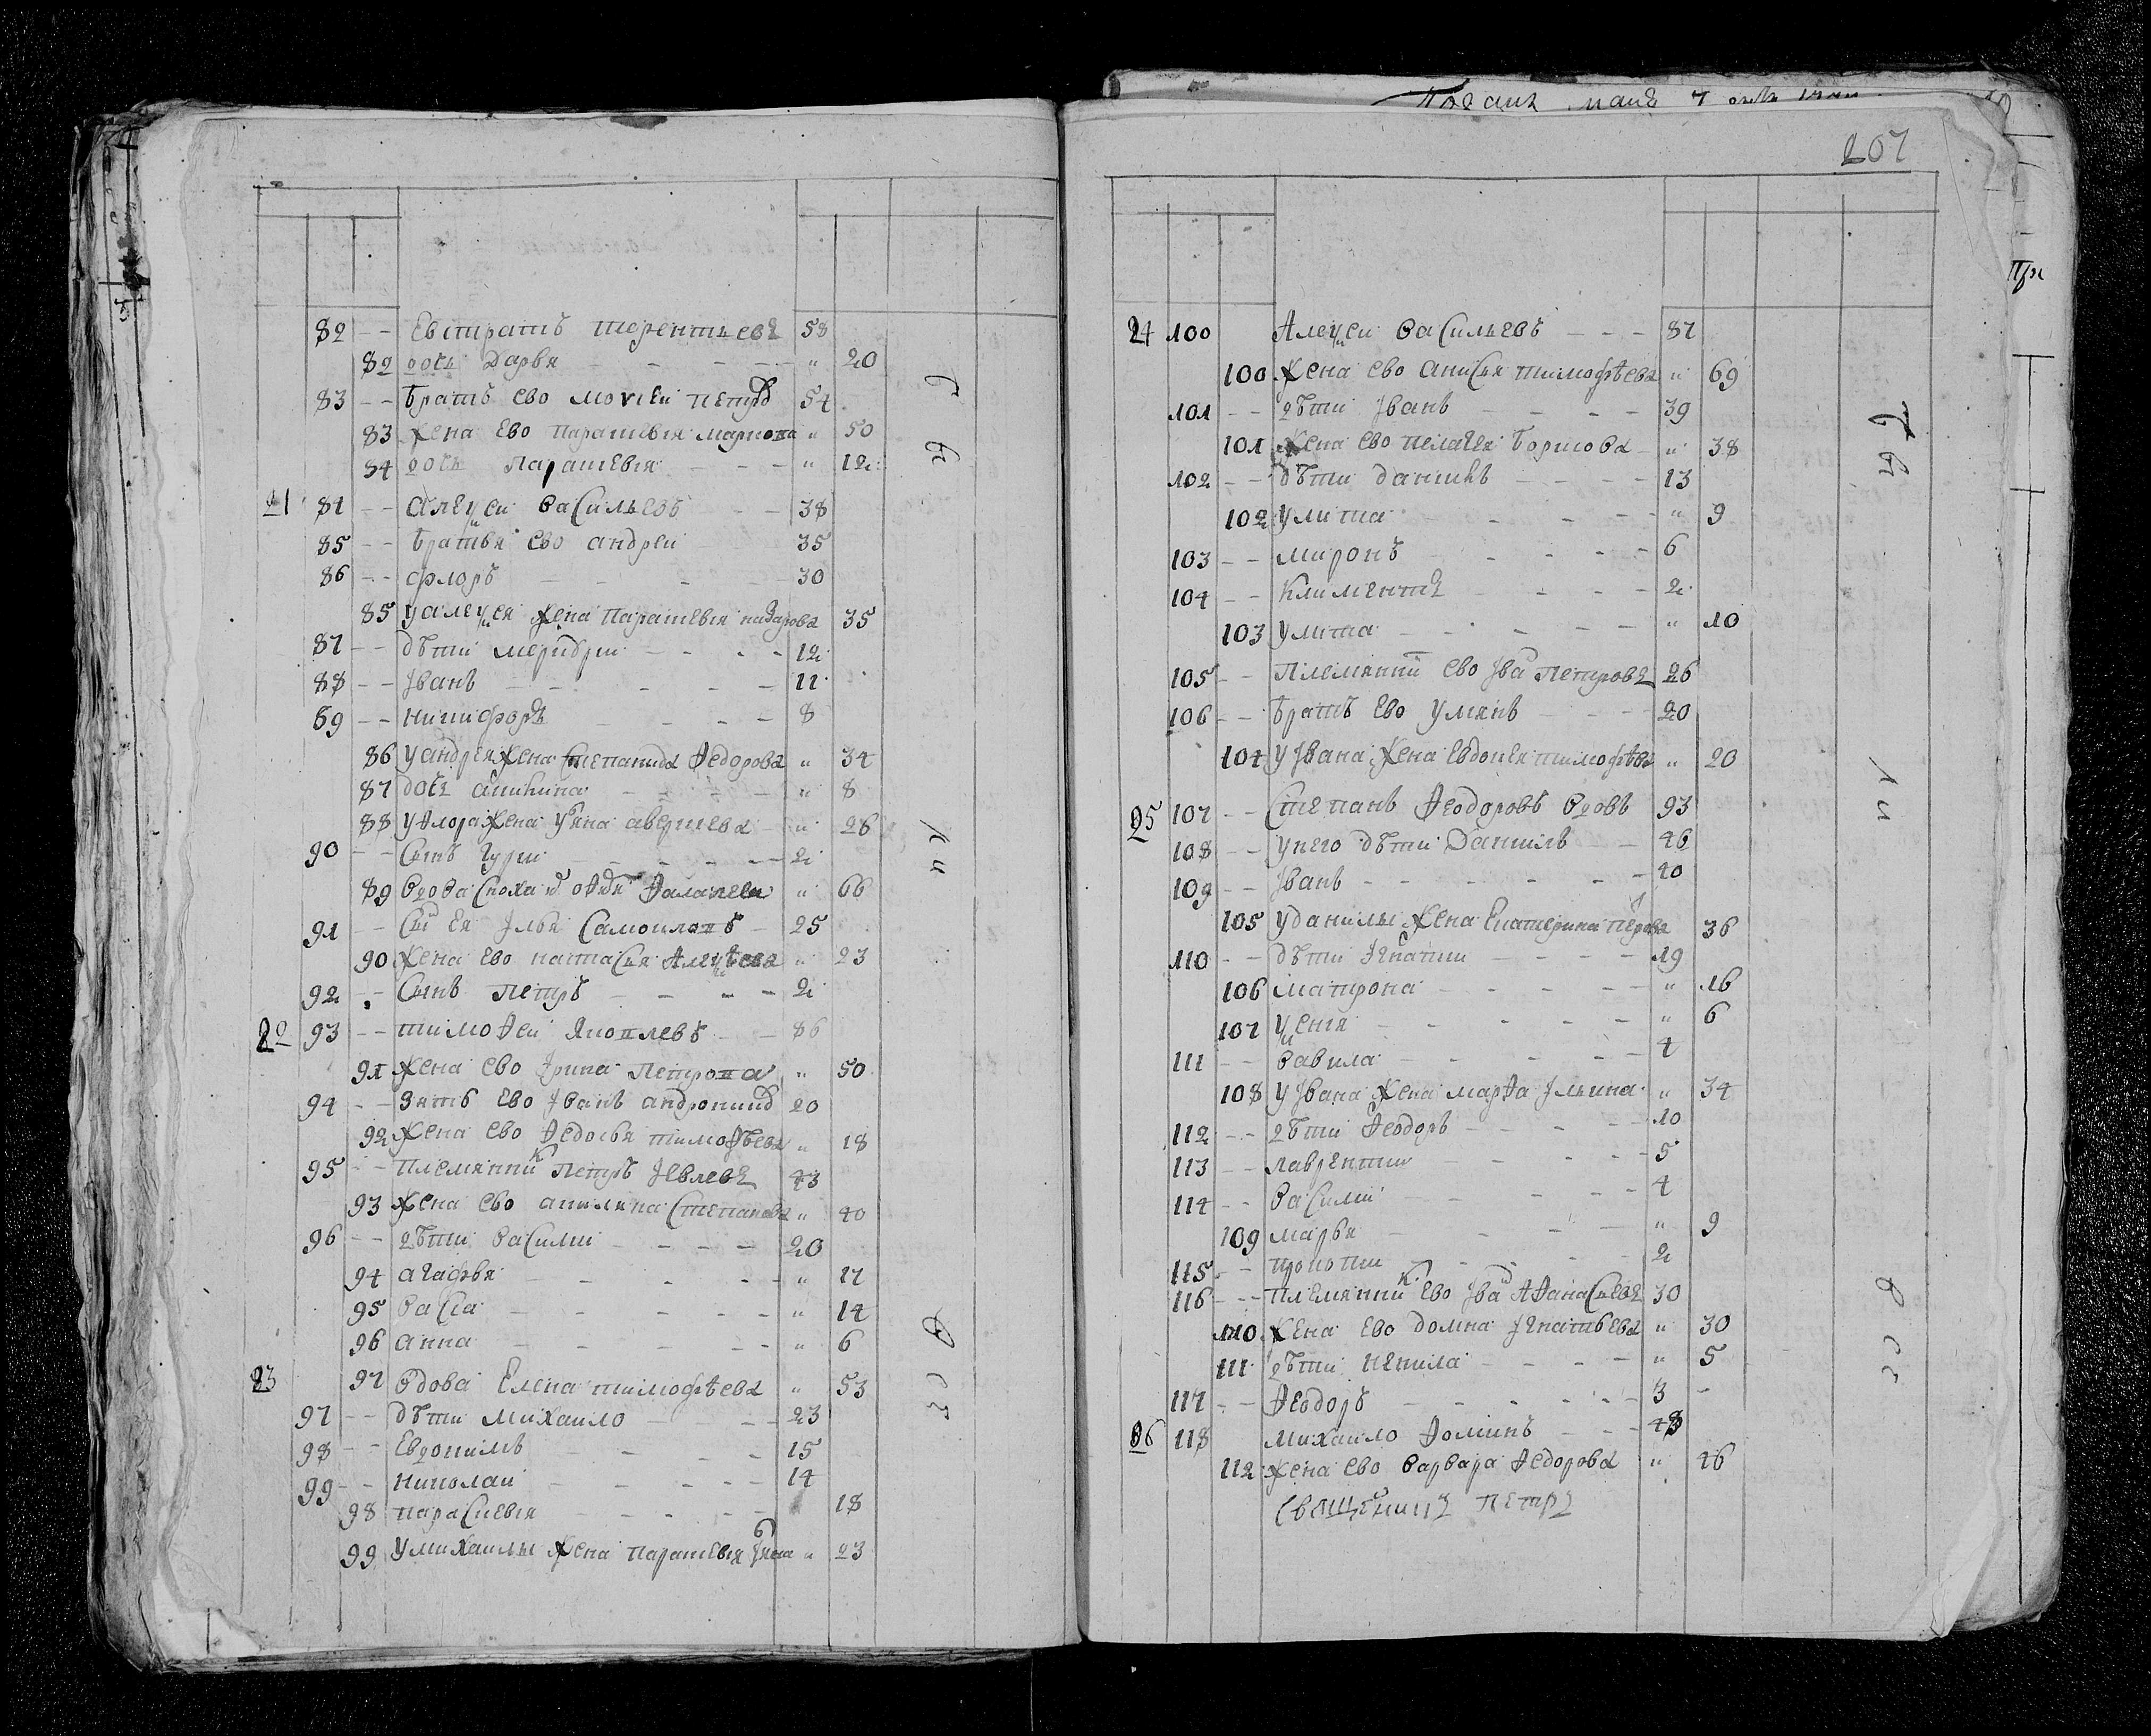 207
82 -- Евстратъ терентьевъ 58
82 дочь Дарья " 20
83 -- братъ ево моисеи петровъ 54
83 Жена Ево параскевья маркова " 50
84 дочь параскевья " 12
21 84 -- Алеѯеи васильевъ 38
85 -- братья ево андреи 35
86 -- флоръ 30
85 у алеѯея жена параскевья назарова 35
87 -- дѣти меркурии 12
88 -- Iванъ 11
89 -- никифоръ 8
86 у андрея жена степанида Ѳедорова " 34
87 дочь акилина " 8
88 у Ѳлора жена ульяна авериева " 26
90 -- сынъ гурии 2
89 вдова " 66
91 -- сынъ ея Илья самоиловъ 25
90 Жена ево настасья Алеѯѣева " 23
92 -- сынъ петръ 2
22 93 -- тимоѲеи яковлевъ 86
91 Жена ево Iрина петрова " 50
94 -- Зять ево Iванъ андрониковъ 20
92 Жена ево Ѳедосья тимоѲѣева " 18
95 -- племянникъ петръ Iевлевъ 43
93 Жена ево акилина степанова " 40
96 -- дѣти василии 20
94 агафья " 17
95 васса " 14
96 анна " 6
23 97 вдова Елена тимофѣева " 53
97 -- дѣти михаило 23
98 -- Евдокимъ 15
99 -- николаи 14
98 параскевья 18
99 у михаилы жена параскевья " 23
24 100 Алеѯеи васильевъ 87
100 Жена ево анисья тимофѣева " 69
101 -- дѣти Iванъ 39
101 Жена ево пелагея борисова " 38
102 -- дѣти данилъ 13
102 улита " 9
103 -- миронъ 6
104 -- климентъ 2
103 улита " 10
105 -- племянникъ ево Iванъ петровъ 26
106 -- братъ ево 20
104 у Iвана жена евдокея тимофѣева " 20
25 107 -- степанъ Ѳеодоровъ вдовъ 93
108 -- у него дѣти данилъ 46
109 -- Iванъ 40
105 у данилы жена Екатерина петрова 36
110 -- дѣти Iгнатии 19
106 матрона " 16
107 Ѯения " 6
111 -- вавила 4
108 у Iвана жена марѲа Iльина " 34
112 -- дѣти Ѳеодоръ 10
113 -- лаврентии 5
114 -- василии 4
109 марья " 9
115 -- прокопии 2
116 -- племянникъ ево Iванъ АѲанасьевъ 30
110 Жена ево домна Iгнатьева " 30
111 дѣти ненила " 5
117 -- Ѳеодоръ 3
26 118 михаило Ѳоминъ 48
112 жена ево варвара Ѳедорова " 46
священникъ петръ